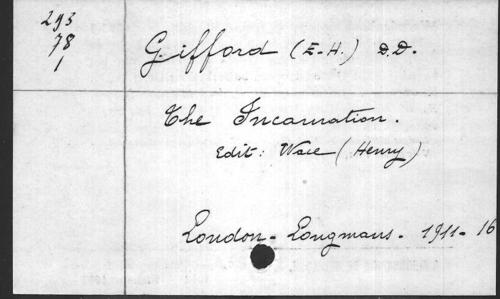 293
78
1
Gifford (E.H.) D.D.
The Incarnation.
Edit: Wace (Henry)
London - Longmans - 1911 - 16